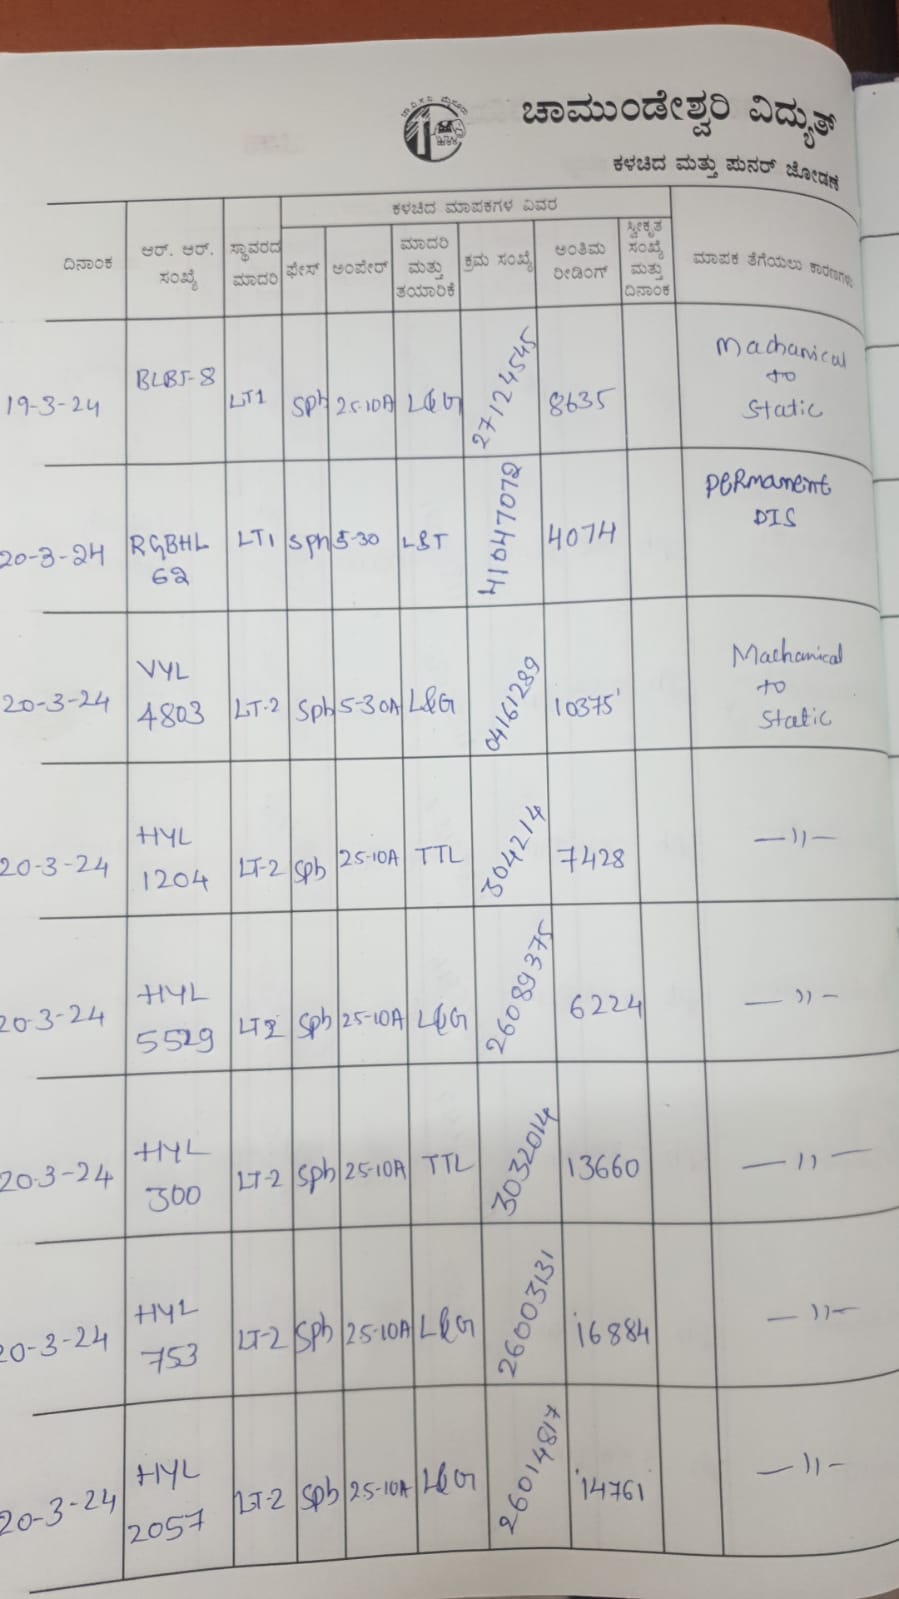 ಚಾಮುಂಡೇಶ್ವರಿ ವಿದ್ಯುತ್
ಕಳಚಿದ ಮತ್ತು ಪುನರ್ ಜೋಡಣೆ
ಕಳಚಿದ ಮಾಪಕಗಳ ವಿವರ
ದಿನಾಂಕ ಆರ್. ಆರ್. ಸಂಖ್ಯೆ ಸ್ಥಾವರದ ಮಾದರಿ ಫೇಸ್ ಅಂಪೇರ್ ಮಾದರಿ ಮತ್ತು ತಯಾರಿಕೆ ಕ್ರಮ ಸಂಖ್ಯೆ ಅಂತಿಮ ರೀಡಿಂಗ್ ಸ್ವೀಕೃತ ಸಂಖ್ಯೆ ಮತ್ತು ದಿನಾಂಕ ಮಾಪಕ ತೆಗೆಯಲು ಕಾರಣಗಳು
19-3-24 BLBJ-8 LT1 Sph 25-10A L&G 27124545 8635 Machanical to Static
20-3-24 RGBHL 62 LT1 Sph 5-30 L&T 41047072 4074 PERmanent DIS
20-3-24 VYL 4803 LT-2 Sph 5-30A L&G 04161289 10375 Machanical to Static
20-3-24 HYL 1204 LT-2 Sph 25-10A TTL 304214 7428 —〃—
20-3-24 HYL 5529 LT2 Sph 25-10A L&G 26089375 6224 —〃—
20-3-24 HYL 300 LT-2 Sph 25-10A TTL 3032014 13660 —〃—
20-3-24 HYL 753 LT-2 Sph 25-10A L&G 26003131 16884 —〃—
20-3-24 HYL 2057 LT-2 Sph 25-10A L&G 26014817 14761 —〃—